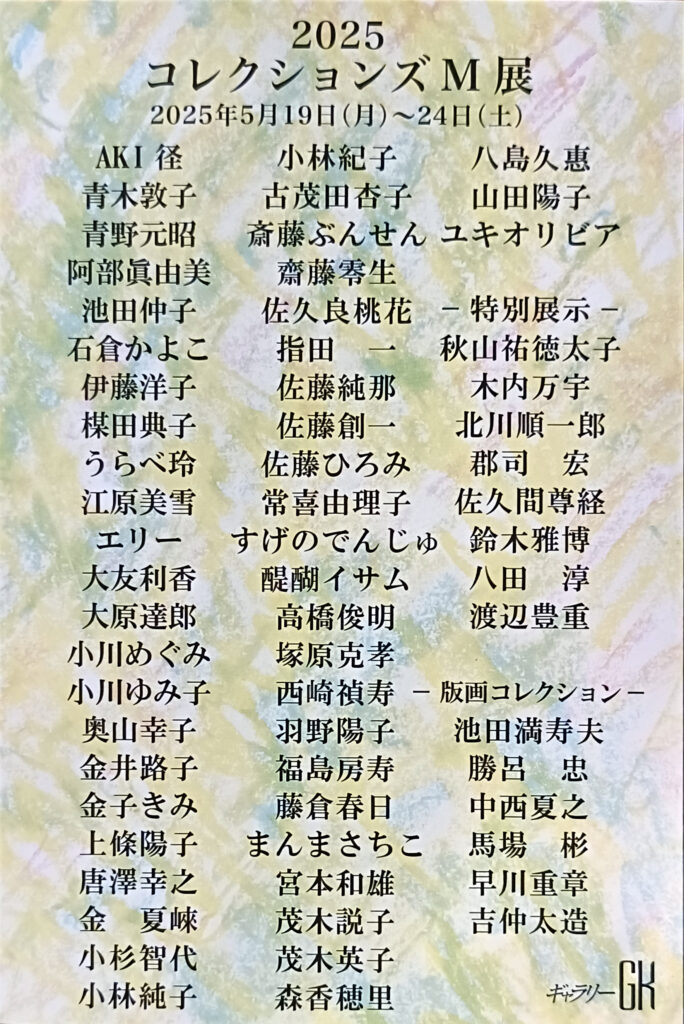 2025
コレクションズM展
2025年5月19日(月)～24日(土)
AKI径
青木敦子
青野元昭
阿部眞由美
池田仲子
石倉かよこ
伊藤洋子
楳田典子
うらべ玲
江原美雪
エリー
大友利香
大原達郎
小川めぐみ
小川ゆみ子
奥山幸子
金井路子
金子きみ
上條陽子
唐澤幸之
金　夏崍
小杉智代
小林純子
小林紀子
古茂田杏子
斎藤ぶんせん
齋藤零生
佐久良桃花
指田　一
佐藤純那
佐藤創一
佐藤ひろみ
常喜由理子
すげのでんじゅ
醍醐イサム
高橋俊明
塚原克孝
西崎禎寿
羽野陽子
福島房寿
藤倉春日
まんまさちこ
宮本和雄
茂木説子
茂木英子
森香穂里
八島久惠
山田陽子
ユキオリビア
－特別展示－
秋山祐徳太子
木内万宇
北川順一郎
郡司　宏
佐久間尊経
鈴木雅博
八田　淳
渡辺豊重
－版画コレクション－
池田満寿夫
勝呂　忠
中西夏之
馬場　彬
早川重章
吉仲太造
ギャラリーGK